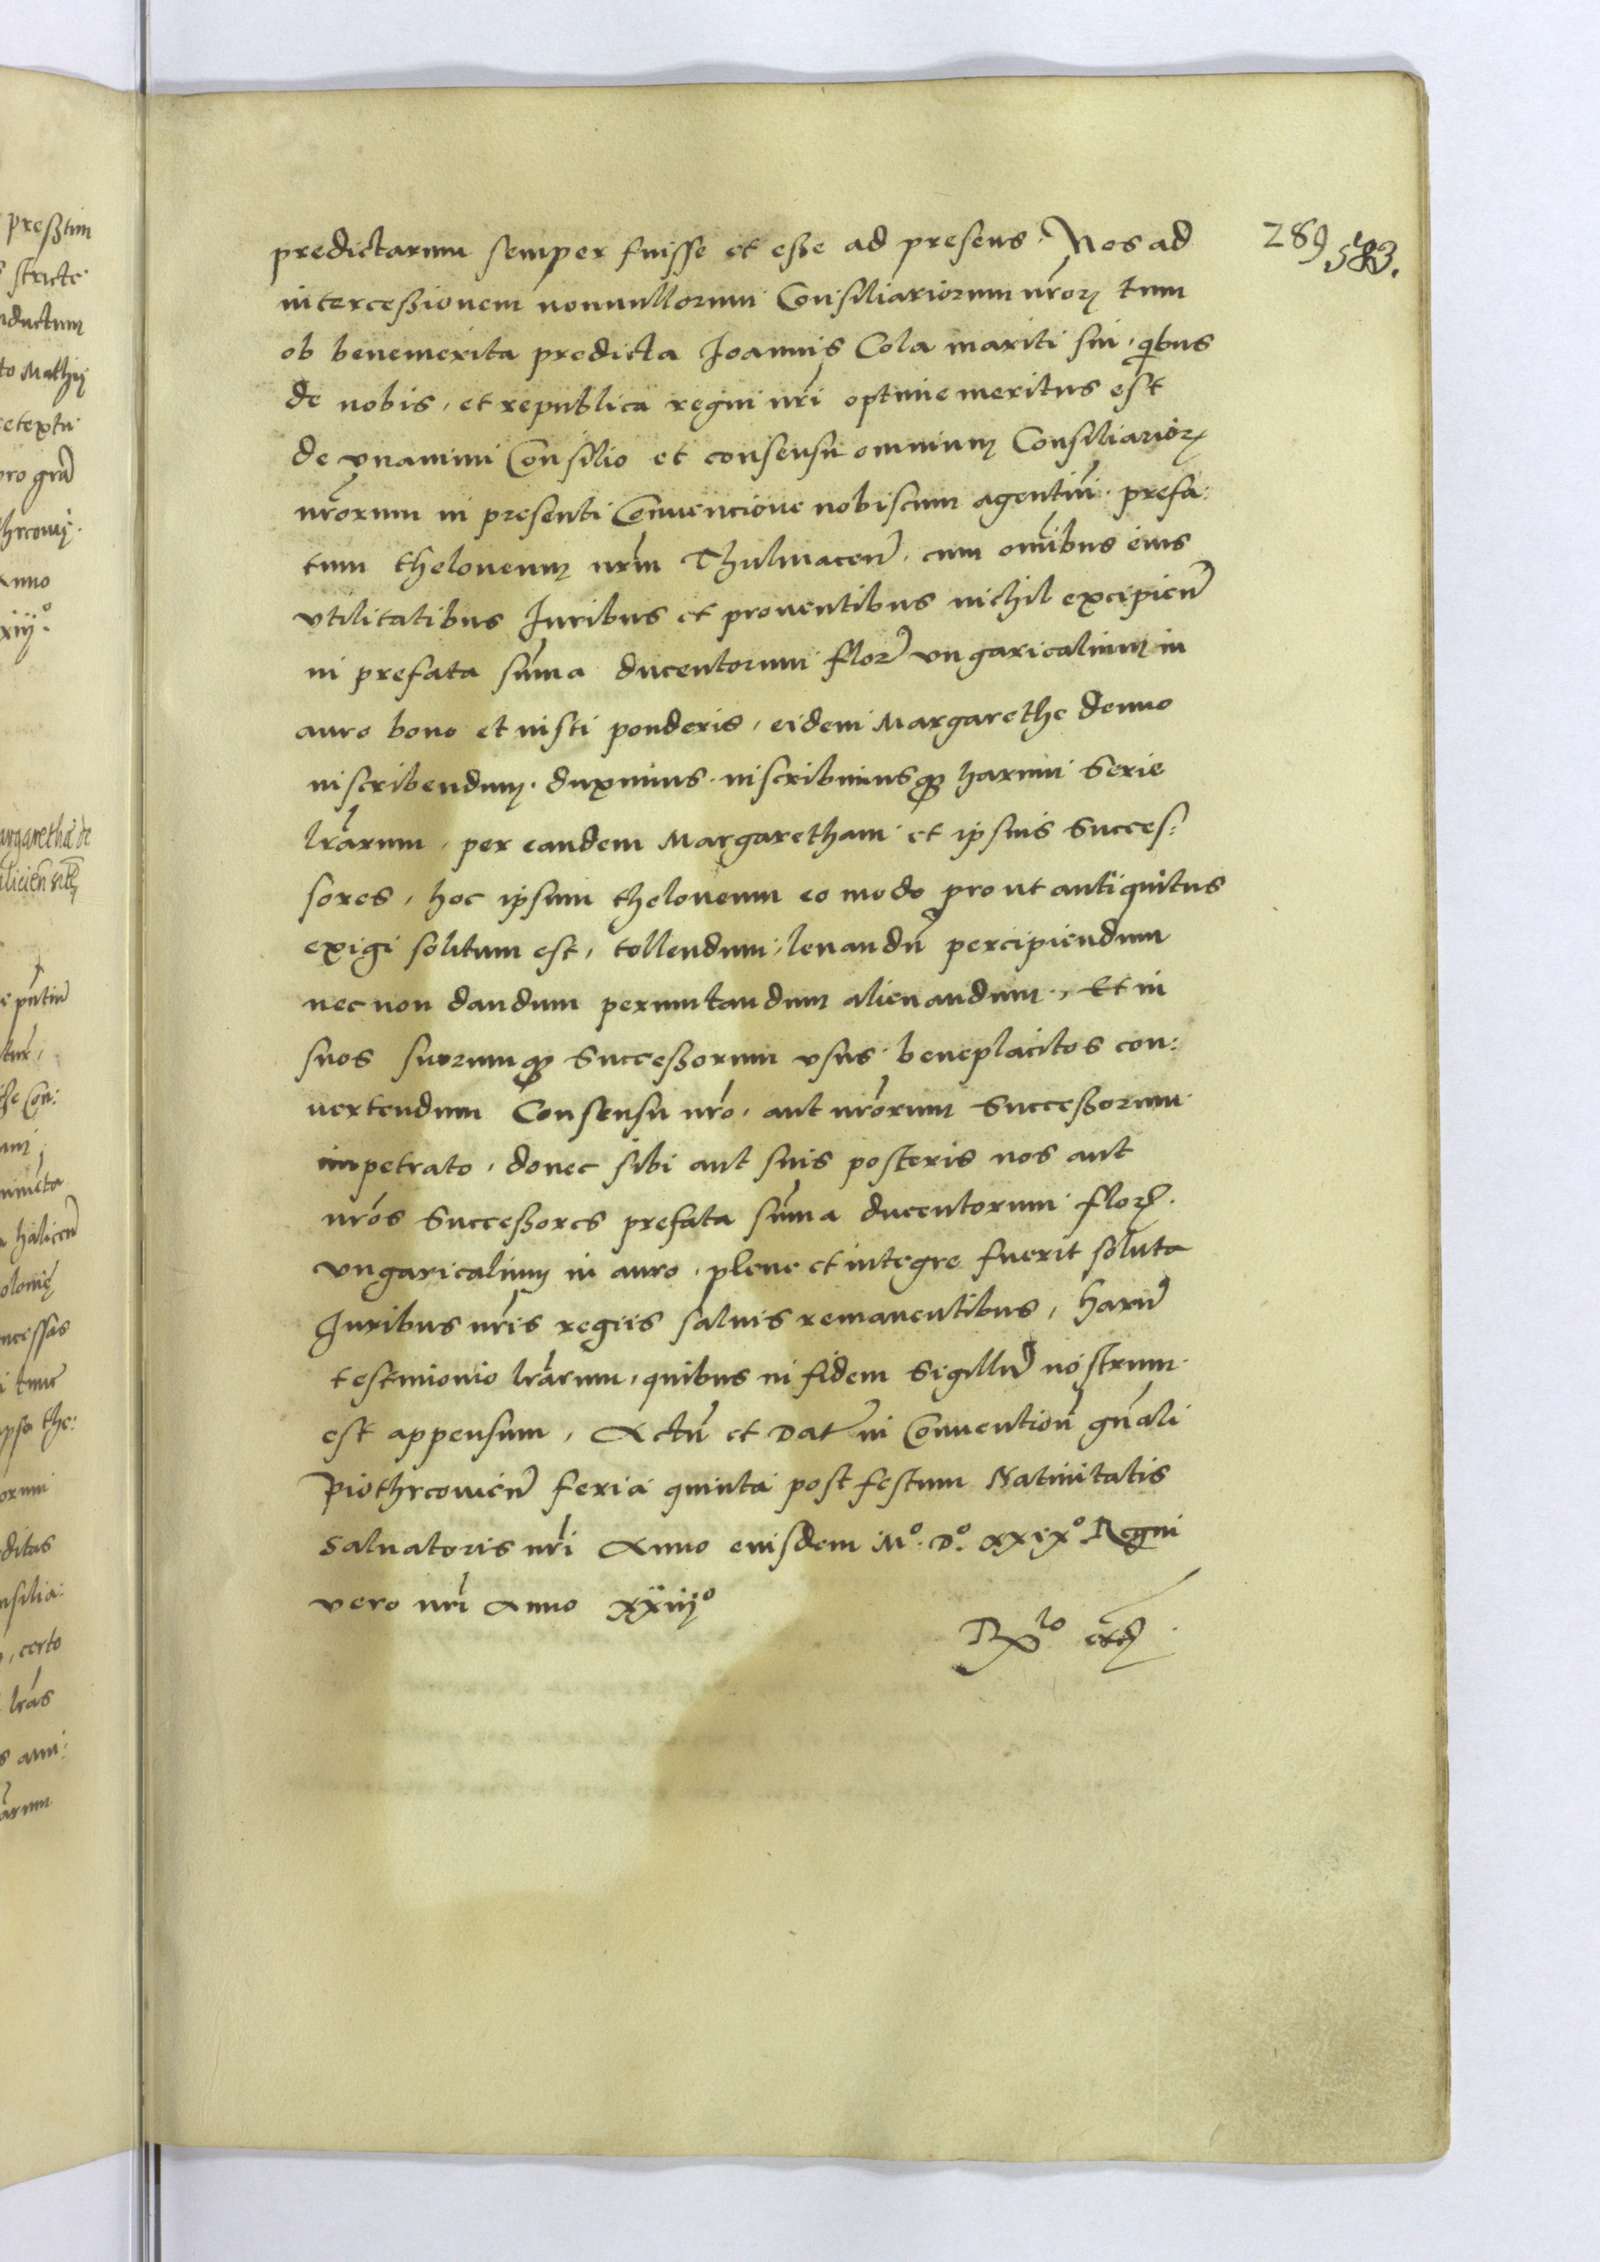 289 583.
predictarum semper fuisse et esse ad presens. Nos ad
intercessionem nonnullorum Consiliariorum nr̃orꝝ tum
ob benemerita predicta Joannis Cola mariti sui, qibus
de nobis, et republica regni nr̃i optime meritus est
de vnanimi Consilio et consensu omnium Consiliariorꝝ
nr̃orum in presenti Conuencione nobiscum agentiũ. prefa:
tum theloneum nr̃m Thulmaceñ. cum om̃ibus eius
vtilitatibus Juribus et prouentibus nichil excipieñ
in prefata sum̃a ducentorum flor̃ vngaricalium in
auro bono et iusti ponderis, eidem Margarethe denuo
inscribendum. duximus. inscribimusqꝫ harum Serie
lr̃arum, per eandem Margaretham et ipsius Succes:
sores, hoc ipsum theloneum eo modo prout antiquitus
exigi solitum est, tollendum, leuandũ percipiendum
nec non dandum permutandum alienandum., Et in
suos suorumqꝫ Successorum vsus beneplacitos con:
uertendum Consensu nr̃o, aut nr̃orum Successorum
impetrato, donec sibi aut suis posteris nos aut
nr̃os Successores prefata sum̃a ducentorum florꝝ.
vngaricalium in auro, plene et integre fuerit soluta
Juribus nr̃is regiis saluis remanentibus, harũ
testimonio lr̃arum, quibus in fidem Sigillũ nostrum
est appensum, Actũ et Dat̃ in Conuentioñ gñali
Piothrcouieñ feria quinta post festum Natiuitatis
Saluatoris nr̃i Anno eiusdem Mº. Dº. xxixº. Regni
vero nr̃i Anno xxiiijº